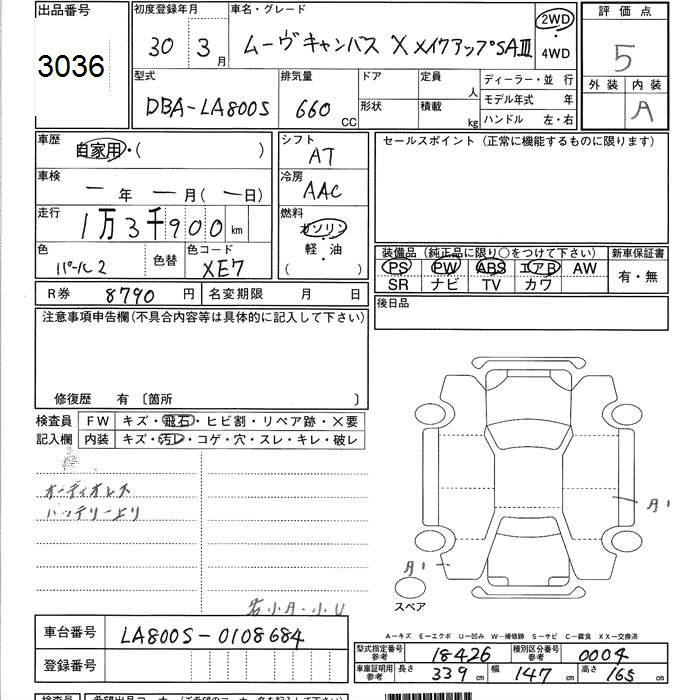 出品番号
3036
初度登録年月
30 3 月
車名・グレード
ムーヴキャンバス X メイクアップSAⅢ
2WD
・
4WD
評価点
5
外装 内装
A
型式
DBA-LA800S
排気量
660 CC
ドア
形状
定員 人
積載 kg
ディーラー・並 行
モデル年式 年
ハンドル 左・右
車歴
自家用・( )
車検
ー年 ー月(ー日)
走行
1万3千900km
色
パール2
色替
色コード
XE7
シフト
AT
冷房
AAC
燃料
ガソリン
・
軽・油
( )
セールスポイント(正常に機能するものに限ります)
装備品(純正品に限り○をつけて下さい)
PS PW ABS エアB AW
SR ナビ TV カワ
新車保証書
有・無
後日品
R券 8790円
名変期限 月 日
注意事項申告欄(不具合内容等は具体的に記入して下さい)
修復歴 有 〔箇所 〕
検査員
記入欄
FW キズ・飛石・ヒビ割・リペア跡・×要
内装 キズ・汚レ・コゲ・穴・スレ・キレ・破レ
オーディオレス
バッテリー上り
小A・小U
A1
A1
スペア
A-キズ E-エクボ U-凹み W-補修跡 S-サビ C-腐食 XX-交換済
車台番号 LA800S-0108684
登録番号
型式指定番号
参考
18426
種別区分番号
参考
0004
車庫証明用
参考
長さ 339cm 幅 147cm 高さ 165cm